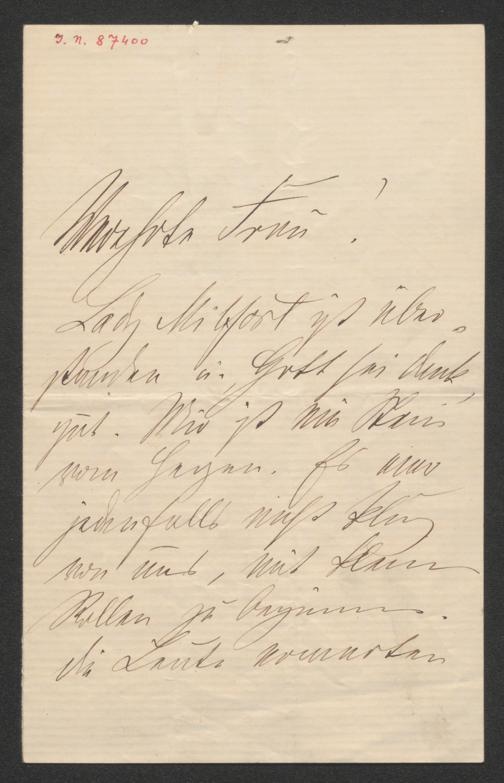 I. N. 87400
Verehrte Frau!
Lady Milfort ist über-
standen u. Gott sei dank,
gut. Mir ist ein Stein
vom Herzen. Es war
jedenfalls nicht klug
von uns, mit kleinen
Rollen zu beginnen.
die Leute erwarten